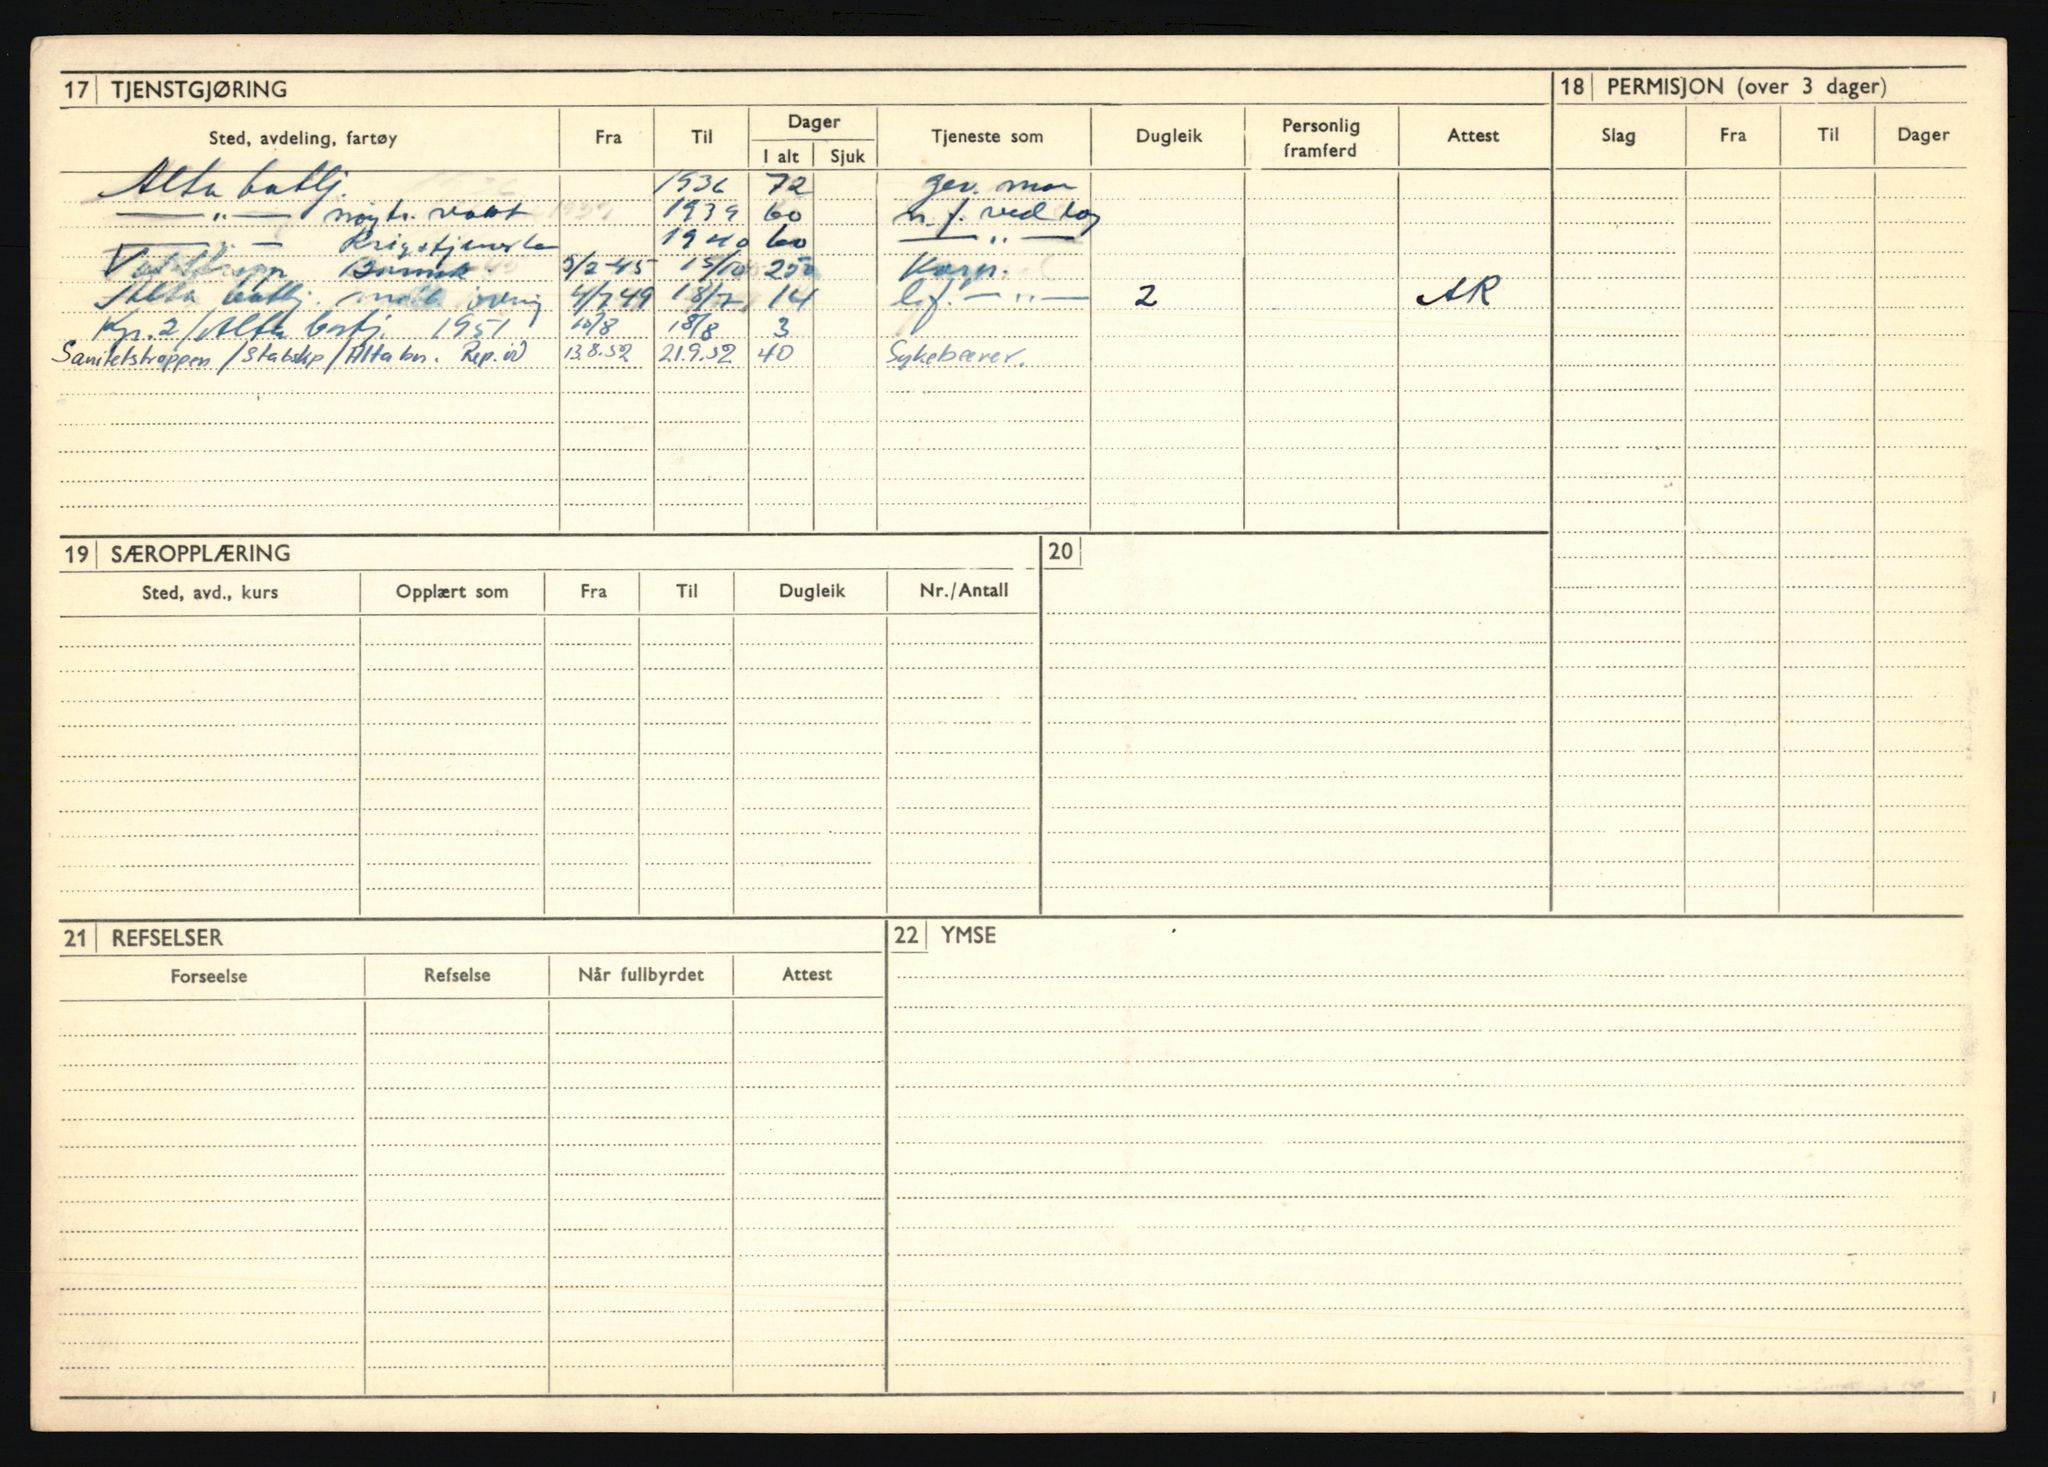 17 TJENSTGJØRING 18 PERMISJON (over 3 dager)
Sted, avdeling, fartøy Fra Til Dager Tjeneste som Dugleik Personlig framferd Attest Slag Fra Til Dager
I alt Sjuk
Alta batlj. 1936 72 gev. man
— " — nøytr. vakt 1939 60 n. f. ved
— " — Krigstjeneste 1940 60 — " —
5/2-45 15/10 250 Korp.
Alta batlj. mob øving 4/7 49 18/7 14 — " — 2 AR
Kp. 2/Alta batj. 1951 16/8 18/8 3
Sanitetstroppen/Stabskp/Alta bn. Rep. øv 13.8.52 21.9.52 40 Sykebærer.
19 SÆROPPLÆRING 20
Sted, avd., kurs Opplært som Fra Til Dugleik Nr./Antall
21 REFSELSER 22 YMSE
Forseelse Refselse Når fullbyrdet Attest